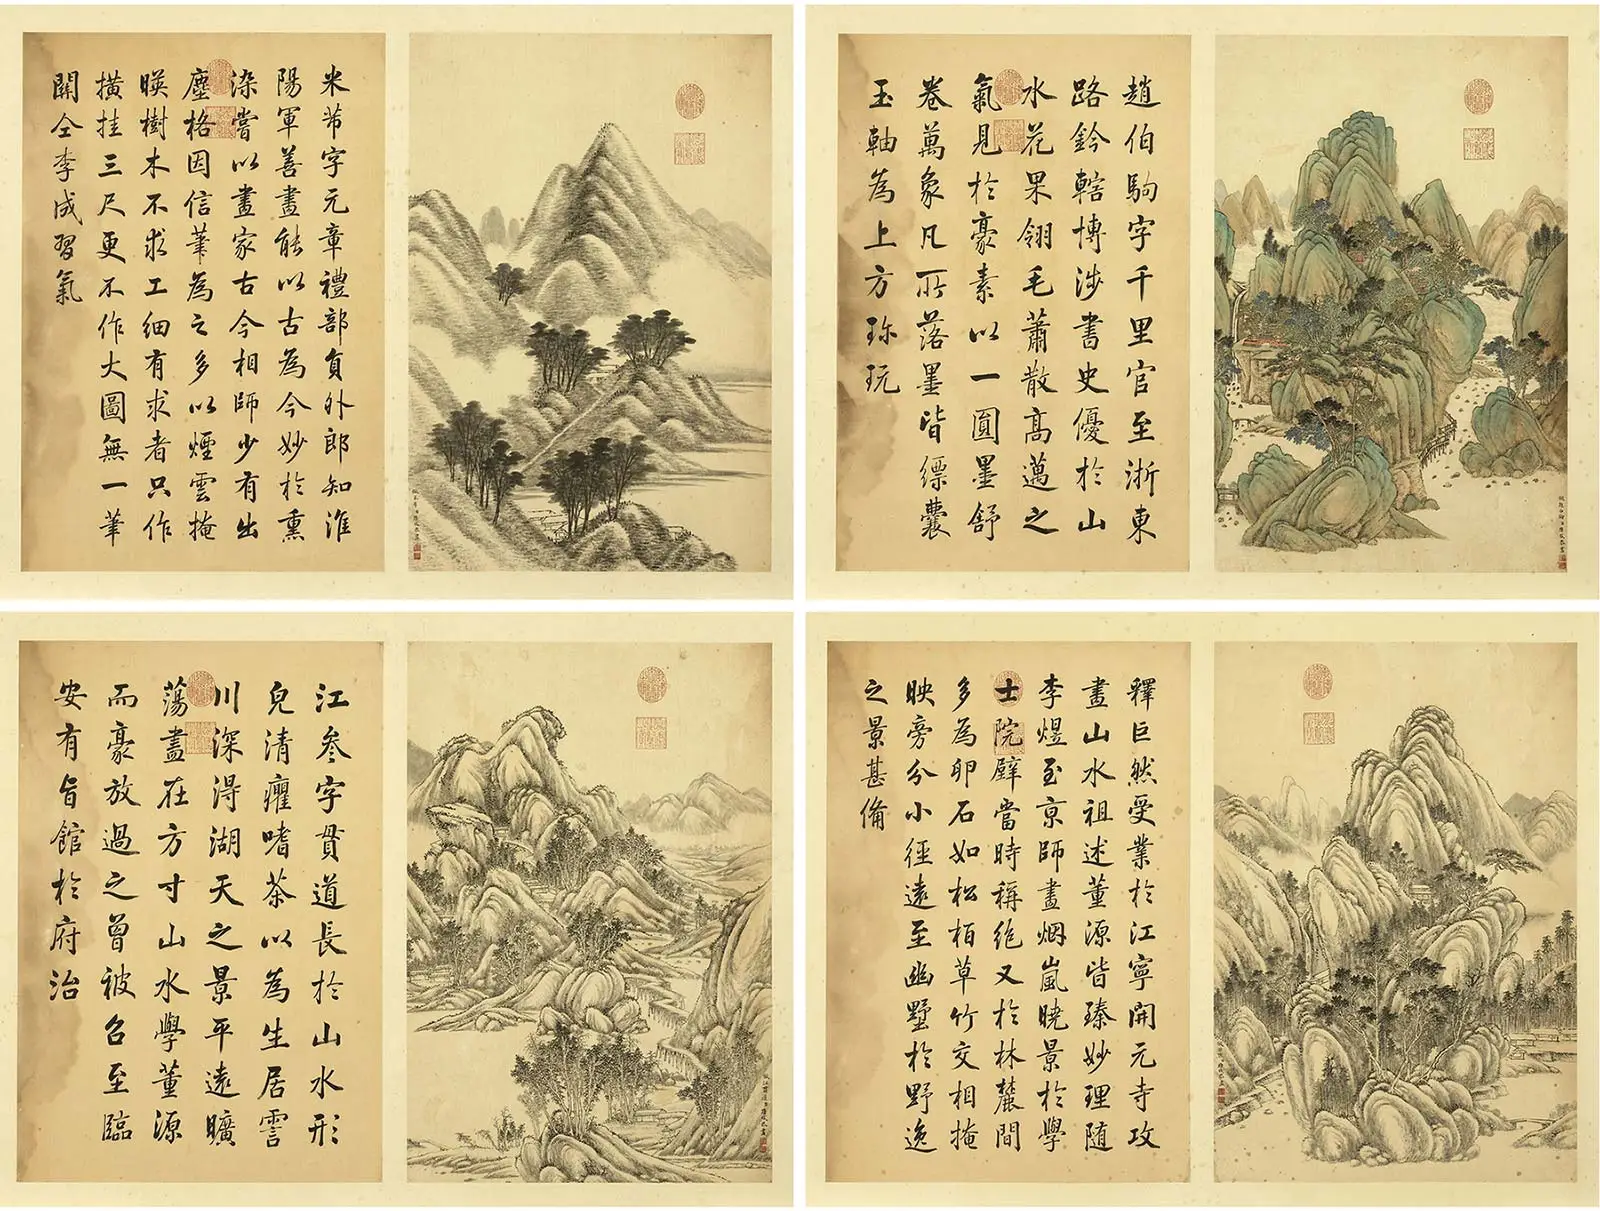 米芾字元章禮部員外郎知淮
陽軍善畫能以古為今妙於熏
染嘗以畫家古今相師少有出
塵格因信筆為之多以煙雲掩
暎樹木不求工細有求者只作
橫挂三尺更不作大圖無一筆
關仝李成習氣
趙伯駒字千里官至浙東
路鈐轄博涉書史優於山
水花果翎毛蕭散高邁之
氣見於豪素以一圓墨舒
卷萬象凡所落墨皆縹囊
玉軸為上方珎玩
江叅字貫道長於山水形
皃清癯嗜茶以為生居霅
川深淂湖天之景平遠曠
蕩盡在方寸山水學董源
而豪放過之曾被召至臨
安有旨館於府治
釋巨然受業於江寧開元寺攻
畫山水祖述董源皆臻妙理随
李煜至京師畫烟嵐曉景於學
士院壁當時稱絶又於林麓間
多為卵石如松栢草竹交相掩
映旁分小徑遠至幽墅於野逸
之景甚備